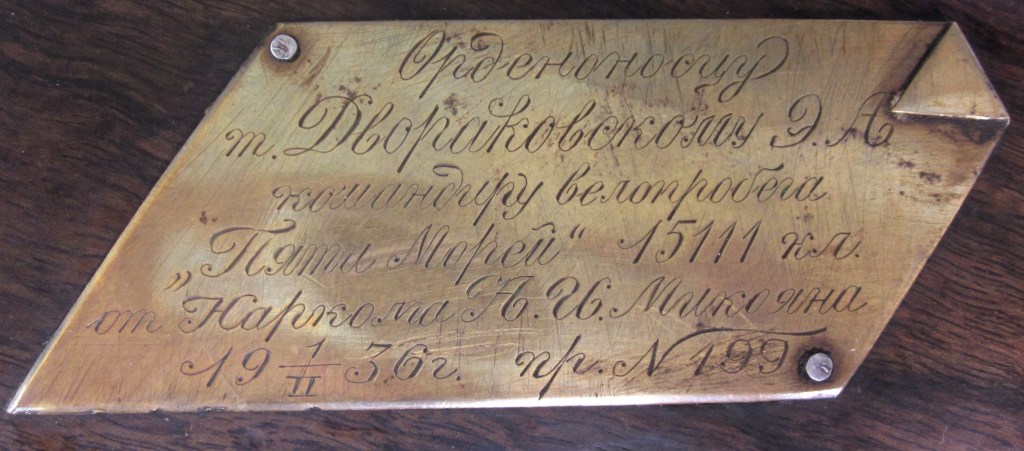 Орденоносцу
т. Двораковскому Э. А
командиру велопробега
„Пяти Морей“ 15111 км.
от Наркома А. И. Микояна
19 1/II 36г. пр. N 199